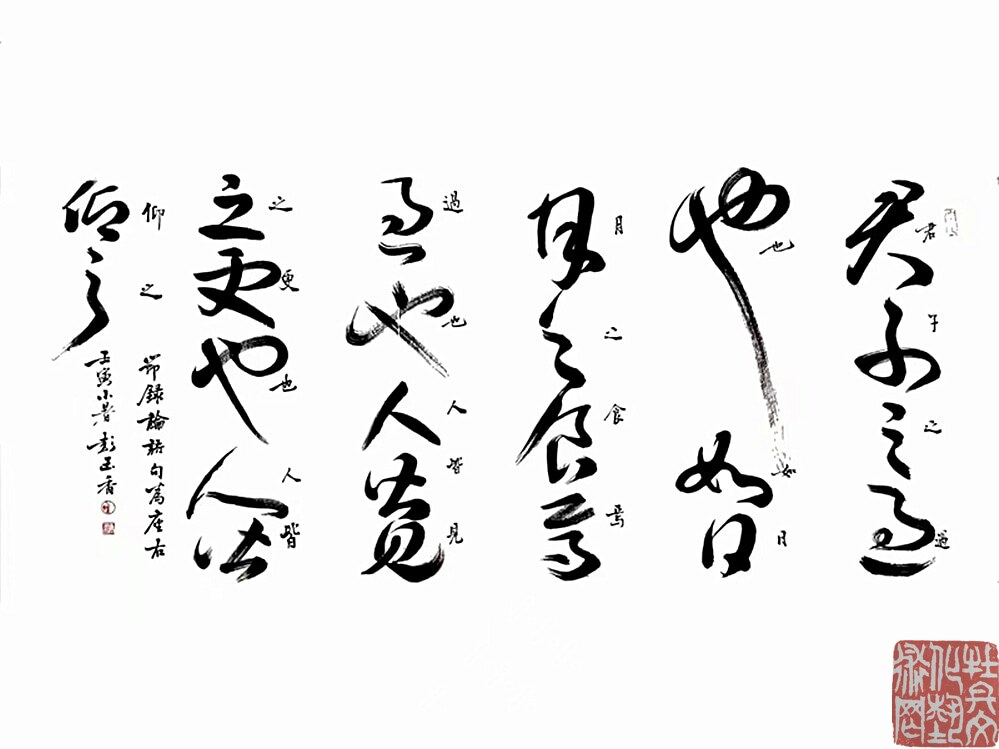 君子之過
君子之過
也如日
也如日
月之食焉
月之食焉
過也人皆見
過也人皆見
之更也人皆
之更也人皆
仰之
仰之
節錄論語句為座右
壬寅小暑彭玉香
杜兵文
化藝
術网